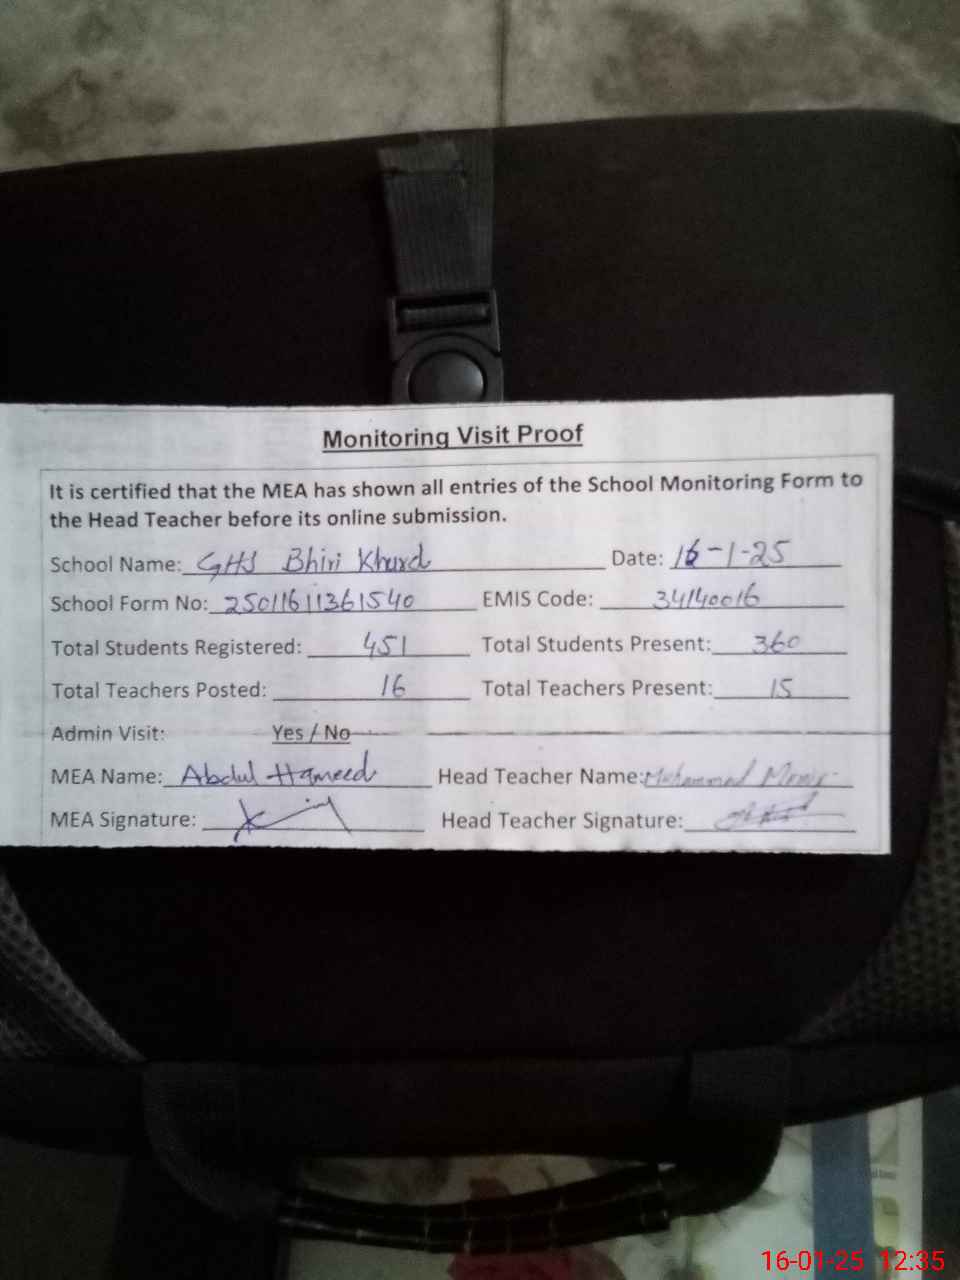 Monitoring Visit Proof
It is certified that the MEA has shown all entries of the School Monitoring Form to
the Head Teacher before its online submission.
School Name: GHS Bhiri Khurd Date: 16-1-25
School Form No: 25011611361540 EMIS Code: 34140016
Total Students Registered: 451 Total Students Present: 360
Total Teachers Posted: 16 Total Teachers Present: 15
Admin Visit: Yes / No
MEA Name: Abdul Hameed Head Teacher Name: Muhammad
MEA Signature: Head Teacher Signature:
16-01-25 12:35